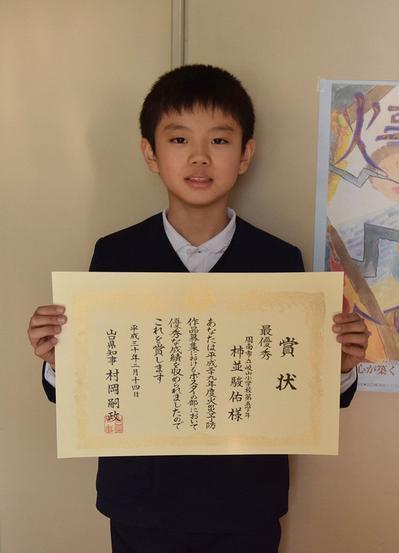 賞状
最優秀
周南市立岐山小学校第五学年
柿並駿佑様
あなたは平成二九年度火災予防
作品募集におけるポスターの部において
優秀な成績を収められましたので
これを賞します
平成三十年二月十四日
山口県知事 村岡嗣政
火
心が築く